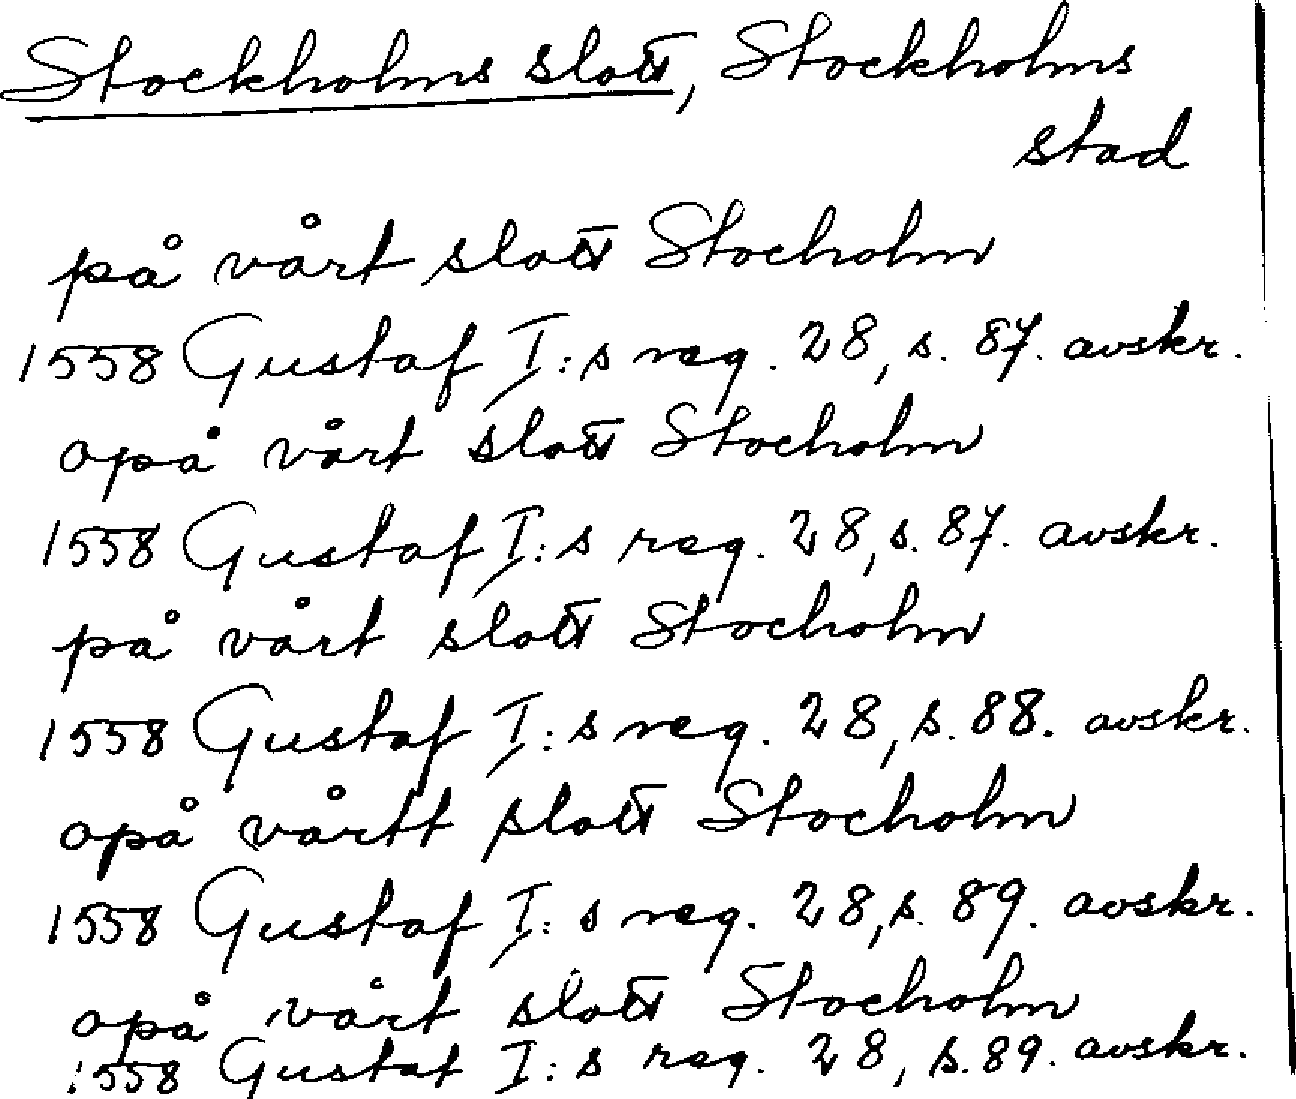 Stockholms slott, Stockholms
stad
på vårt slott Stocholm
1558 Gustaf I:s reg. 28, s. 87. avskr.
opå vårt slott Stocholm
1558 Gustaf I:s reg. 28, s. 87. avskr.
på vårt slott Stocholm
1558 Gustaf I:s reg. 28, s. 88. avskr.
opå vårtt slott Stocholm
1558 Gustaf I:s reg. 28, s. 89. avskr.
opå vårt slott Stocholm
1558 Gustaf I:s reg. 28, s. 89. avskr.